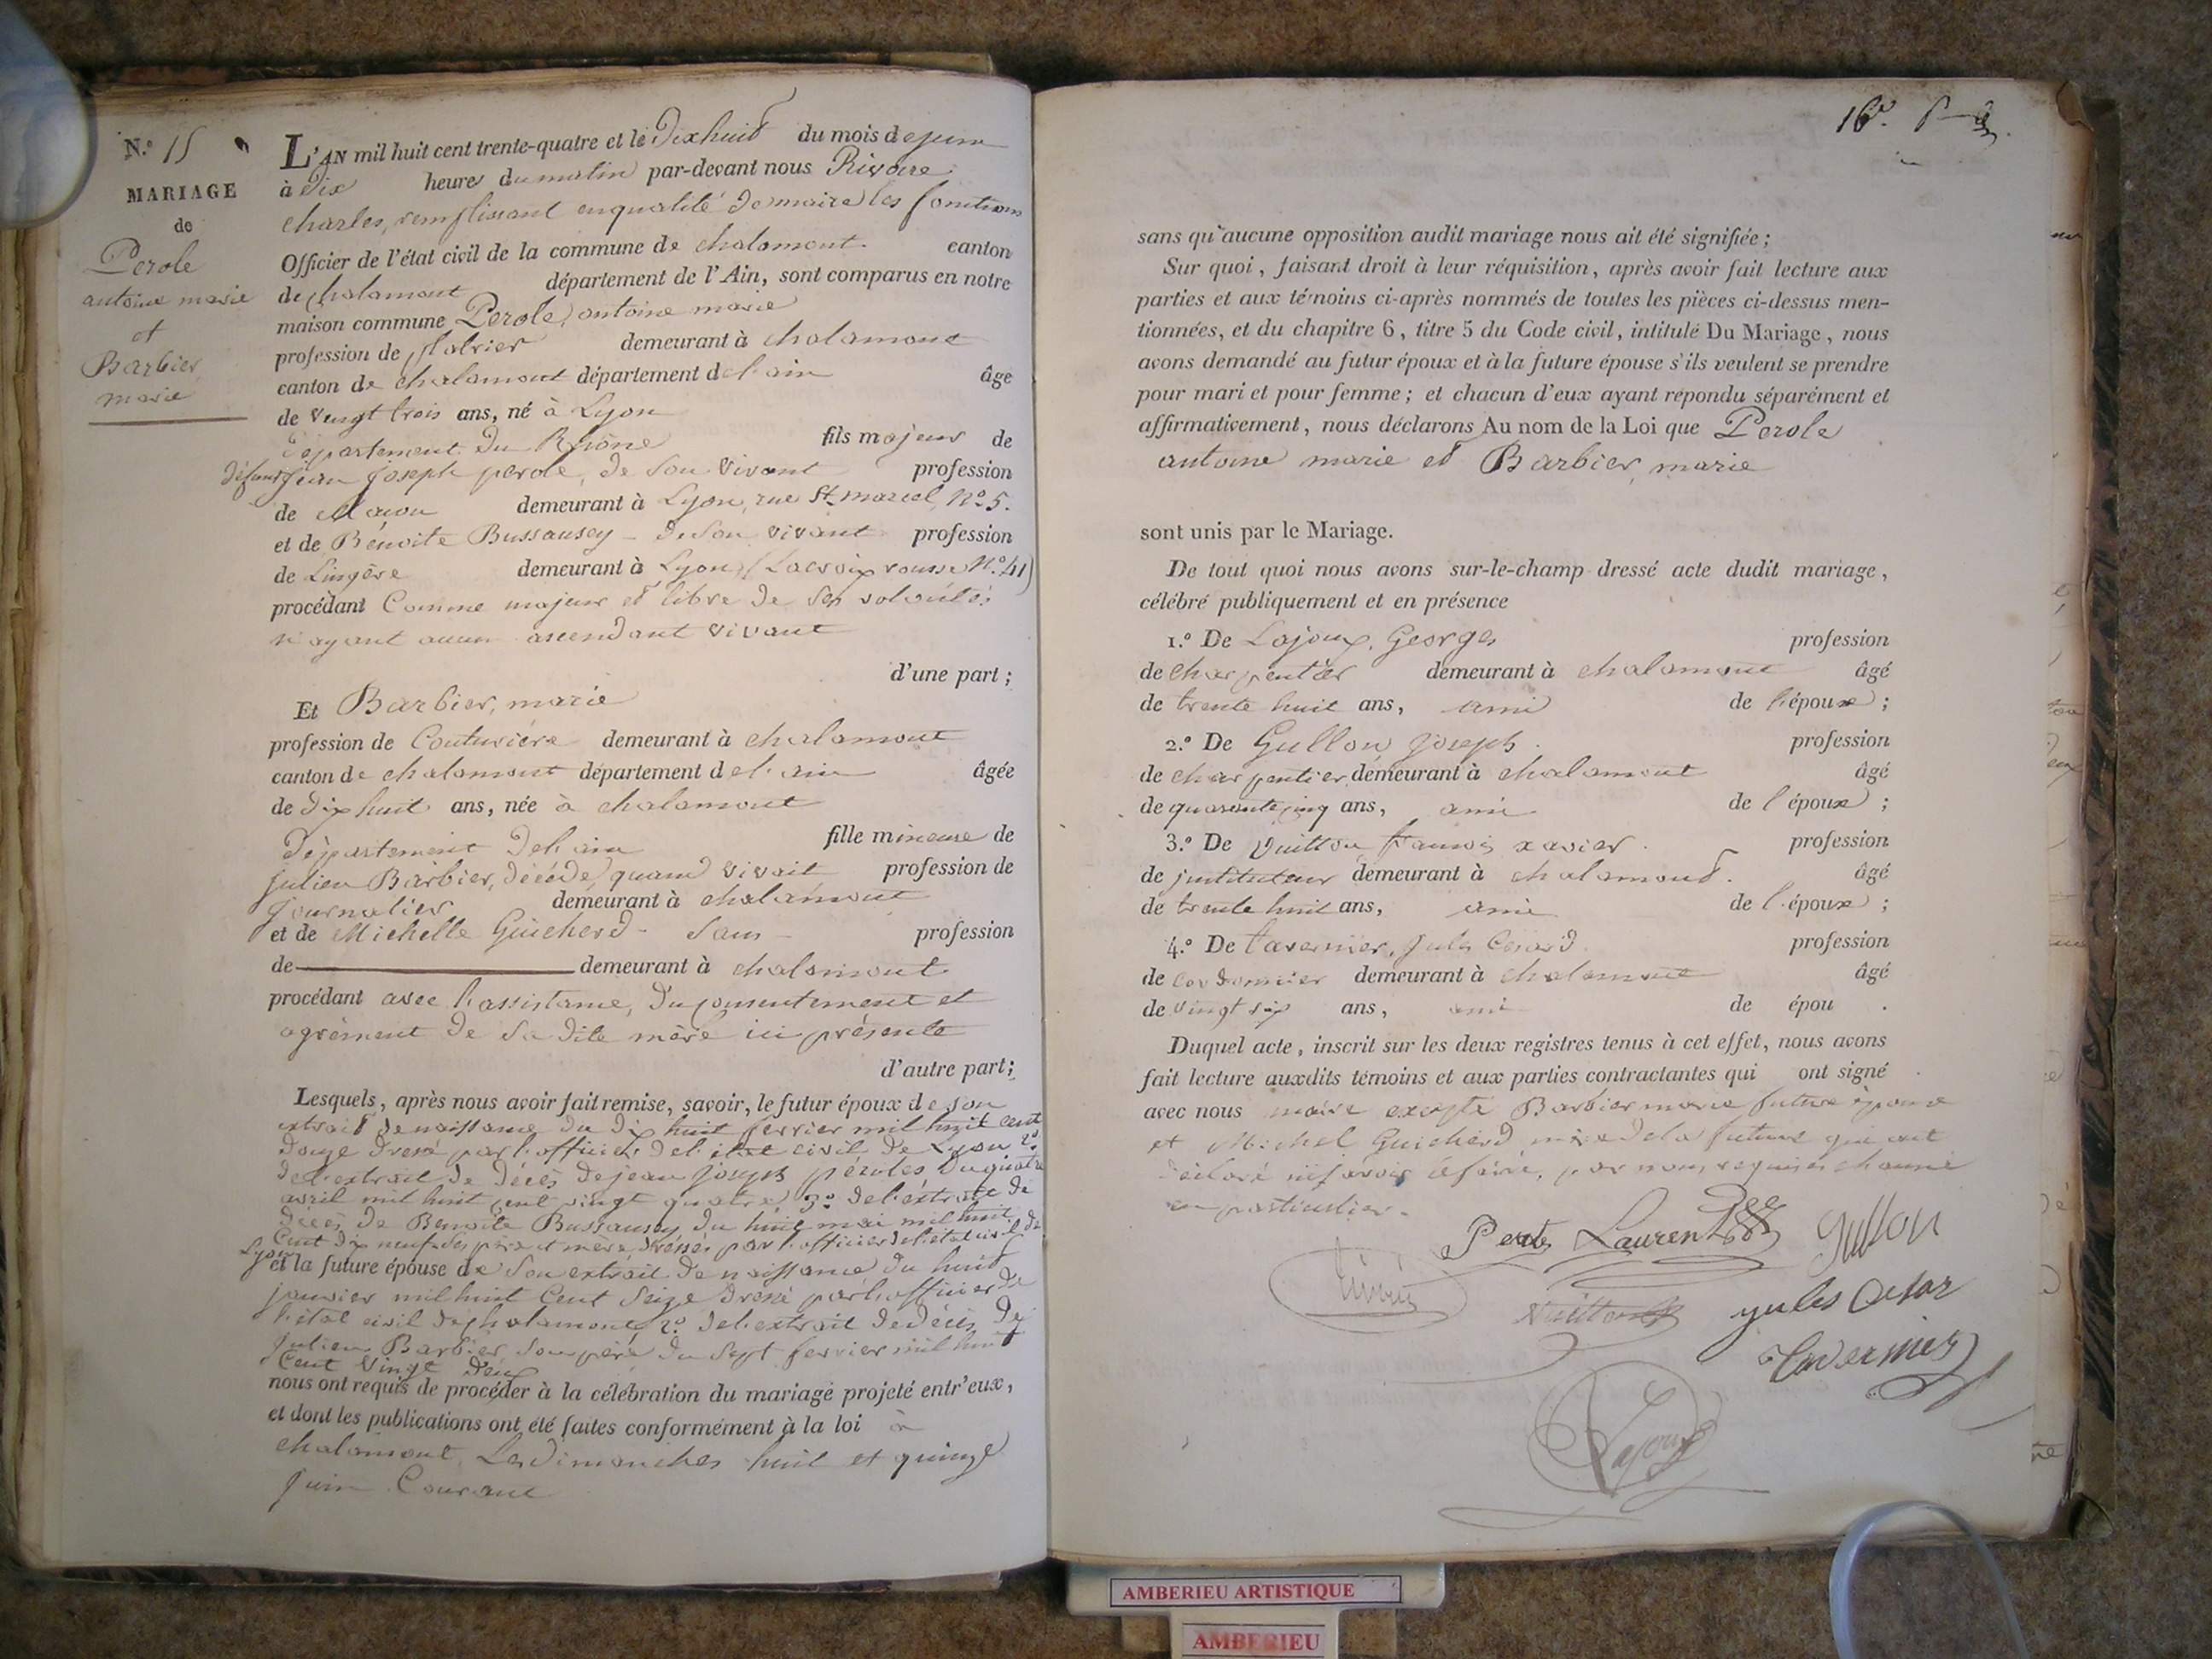 N.º 15
MARIAGE
de
Perole
antoine marie
et
Barbier
marie
L'AN mil huit cent trente-quatre et le Dixhuit du mois de juin
à Dix heures du matin par-devant nous Rivoire
charles, remplissant en qualité de maire les fonctions
Officier de l'état civil de la commune de chalamont canton
de chalamont département de l'Ain, sont comparus en notre
maison commune Perole, antoine marie
profession de platrier demeurant à chalamont
canton de chalamont département de l'ain âge
de vingt trois ans, né à Lyon
département du Rhône fils majeur de
défunt jean joseph perole, de son vivant profession
de Maçon demeurant à Lyon, rue St marcel, Nº 5.
et de Bénoite Bussausey - de son vivant profession
de Lingère demeurant à Lyon (Lacroix rousse Nº 41)
procédant Comme majeur et libre de ses volontés
n'ayant aucun ascendant vivant
d'une part ;
Et Barbier, marie
profession de Couturière demeurant à chalamont
canton de chalamont département de l'ain âgée
de dix huit ans, née à chalamont
département de l'ain fille mineure de
julien Barbier, décédé, quand vivait profession de
journalier demeurant à chalamont
et de Michelle Guicherd - Sans - profession
de demeurant à chalamont
procédant avec l'assistance, du consentement et
agrément de sa dite mère ici présente
d'autre part ;
Lesquels, après nous avoir fait remise, savoir, le futur époux de son
extrait de naissance du dix huit fevrier mil huit cent
douze dressé par l'officier de l'état civil de Lyon 2º
de l'extrait de décès de jean joseph péroles du quatre
avril mil huit cent vingt quatre 3º de l'extrait de
décès de Benoite Bussausey du huit mai mil huit
Cent dix neuf ses père et mère dressés par l'officier de l'état civil de
Lyon
et la future épouse de son extrait de naissance du huit
janvier mil huit Cent Seize dressé par l'officier de
l'état civil de chalamont 2º de l'extrait de décès de
julien Barbier son père du sept fevrier mil huit
Cent vingt deux
nous ont requis de procéder à la célébration du mariage projeté entr'eux,
et dont les publications ont été faites conformément à la loi à
chalamont, Les Dimanches huit et quinze
juin Courant
16.
sans qu'aucune opposition audit mariage nous ait été signifiée ;
Sur quoi, faisant droit à leur réquisition, après avoir fait lecture aux
parties et aux témoins ci-après nommés de toutes les pièces ci-dessus men-
tionnées, et du chapitre 6, titre 5 du Code civil, intitulé Du Mariage, nous
avons demandé au futur époux et à la future épouse s'ils veulent se prendre
pour mari et pour femme ; et chacun d'eux ayant répondu séparément et
affirmativement, nous déclarons Au nom de la Loi que Perole
antoine marie et Barbier, marie
sont unis par le Mariage.
De tout quoi nous avons sur-le-champ dressé acte dudit mariage,
célébré publiquement et en présence
1.º De Lajoux, Georges profession
de charpentier demeurant à chalamont âgé
de trente huit ans, ami de l'époux ;
2.º De Gullon joseph profession
de charpentier demeurant à chalamont âgé
de quarante cinq ans, ami de l'époux ;
3.º De Vuitton francois xavier profession
de jnstituteur demeurant à chalamont. âgé
de trente huit ans, ami de l'époux ;
4.º De tavernier, jules Cesard profession
de cordonnier demeurant à chalamont âgé
de vingt six ans, ami de épou .
Duquel acte, inscrit sur les deux registres tenus à cet effet, nous avons
fait lecture auxdits témoins et aux parties contractantes qui ont signé
avec nous maire excepté Barbier marie future épouse
et Michel Guicherd mère de la future qui ont
déclaré ne savoir le faire, par nous requises chacune
en particulier.
Laurent
Gullon
Vuitton
jules Cesar
tavernier
Lajoux
AMBERIEU ARTISTIQUE
AMBERIEU